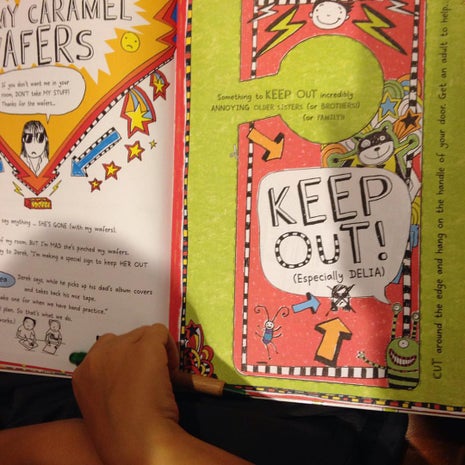 MY CARAMEL
WAFERS
If you don't want me in your
room, DON'T take MY STUFF!
Thanks for the wafers...
say anything ... SHE'S GONE (with my wafers).
of my room. BUT I'm MAD she's pinched my wafers.
"I'm making a special sign to keep HER OUT
Derek says, while he picks up his dad's album covers
and takes back his mix tape.
one for when we have band practice."
plan. So that's what we do.
Something to KEEP OUT incredibly
ANNOYING OLDER SISTERS (or BROTHERS)
(or FAMILY)!
KEEP
OUT!
(Especially DELIA)
CUT around the edge and hang on the handle of your door. Get an adult to help...